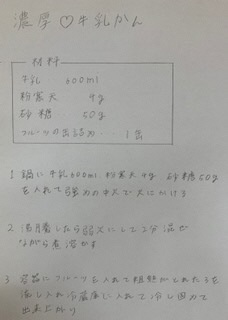 濃厚♡牛乳かん
材料
牛乳‥ 600ml
粉寒天 4g
砂糖 50g
フルーツの缶詰め‥‥1缶
1 鍋に牛乳600ml 粉寒天4g 砂糖50g
を入れて強力の中火で火にかける
2 沸騰したら弱火にして2分混ぜ
ながら煮溶かす
3 容器にフルーツを入れて粗熱がとれたらを
流し入れ冷蔵庫に入れて冷し固めて
出来上がり